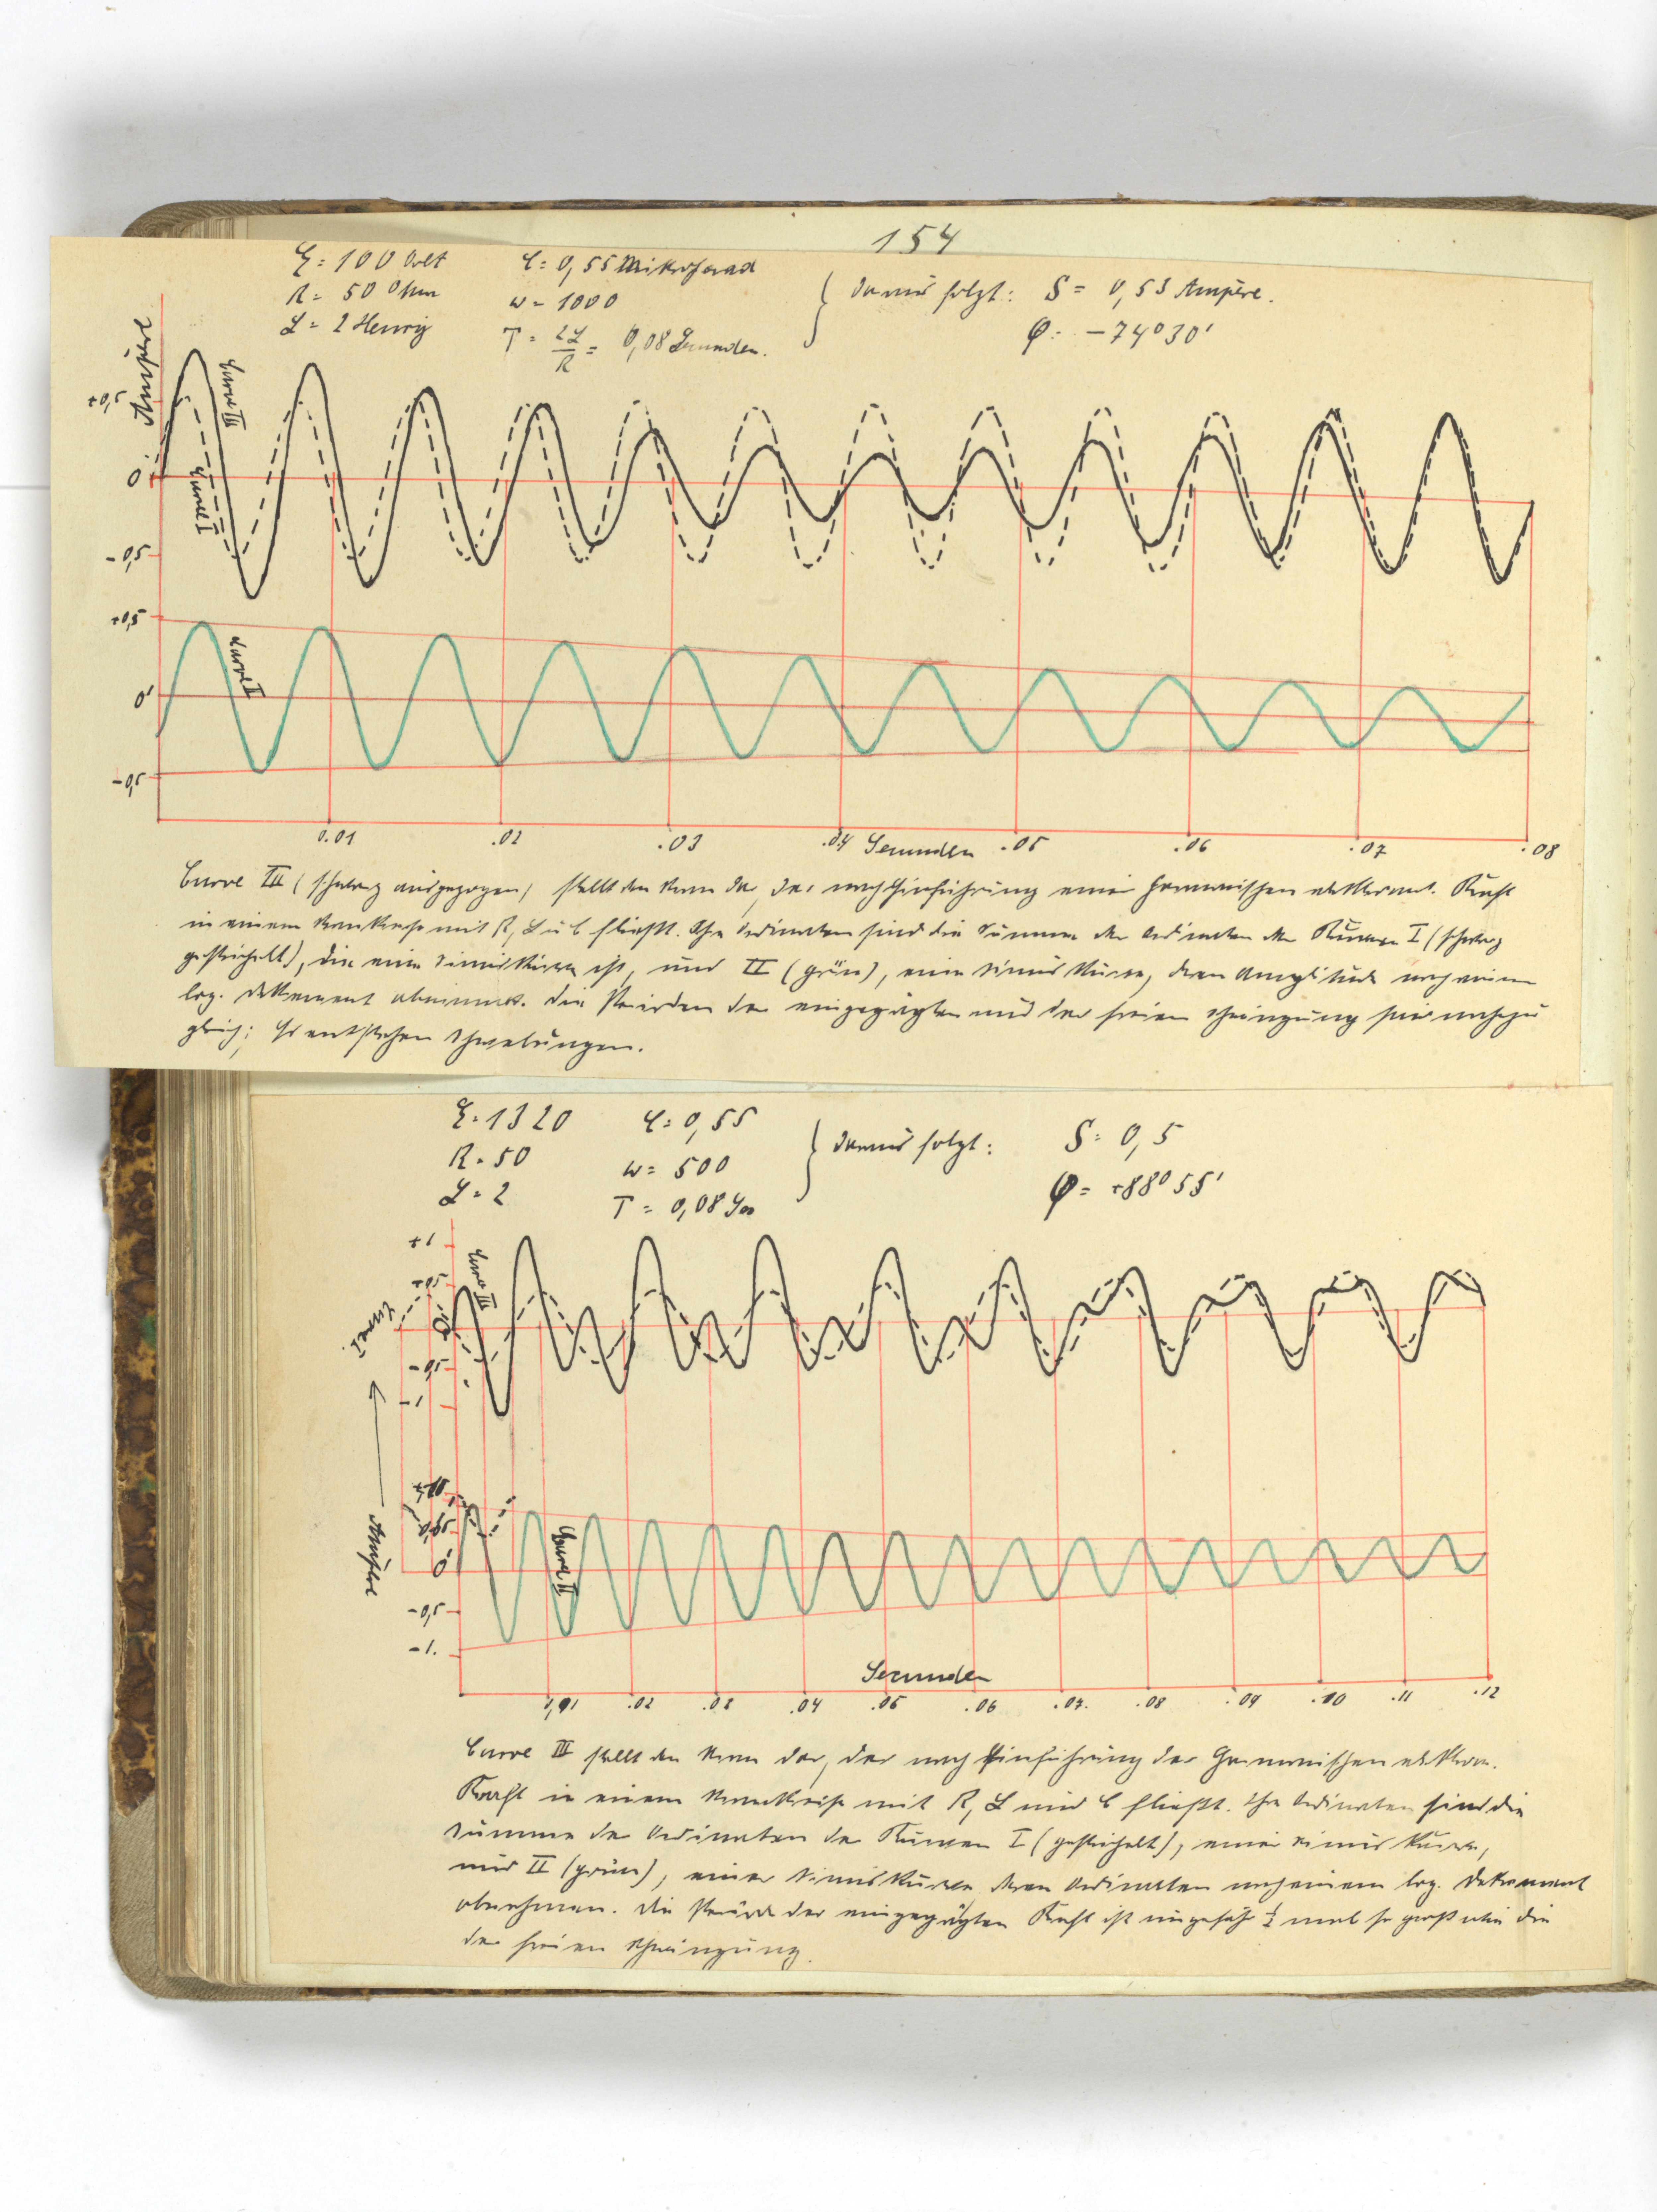 154
E = 100 Volt C = 0,55 Mikrofarad
R = 50 Ohm w = 1000 } Daraus folgt: S = 0,53 Ampère.
L = 2 Henry T = 2L/R = 0,08 Secunden. φ = -74°30'
Ampère
+0,5
0
-0,5
Curve III
Curve I
+0,5
0'
-0,5
Curve II
0.01 .02 .03 .04 Secunden .05 .06 .07 .08
Curve III (schwarz ausgezogen) stellt den Strom dar, der nach Einführung einer harmonischen elektromot. Kraft
in einem Stromkreise mit R, L u C fließt. Ihre Ordinaten sind die Summe der Ordinaten der Kurven I (schwarz
gestrichelt), die eine Sinuskurve ist, und II (grün), eine Sinus Kurve, deren Amplitude nach einem
log. Dekrement abnimmt. Die Perioden der eingeprägten und der freien Schwingung sind nahezu
gleich; es entstehen Schwebungen.
E = 1320 C = 0,55
R = 50 w = 500 } Daraus folgt: S = 0,5
L = 2 T = 0,08 Sec φ = +88°55'
+1
+0,5
0
-0,5
-1
Curve III
Curve I
Ampère
0'
-0,5
-1.
Curve II
Secunden
0,01 .02 .03 .04 .05 .06 .07. .08 .09 .10 .11 .12
Curve III stellt den Strom dar, der nach Einführung der harmonischen elektrom.
Kraft in einem Stromkreise mit R, L und C fließt. Ihre Ordinaten sind die
Summe der Ordinaten der Kurven I (gestrichelt), einer Sinus Kurve,
und II (grün), einer Sinuskurve deren Ordinaten nach einem log. Dekrement
abnehmen. Die Periode der eingeprägten Kraft ist ungefähr ½ mal so groß wie die
der freien Schwingung.